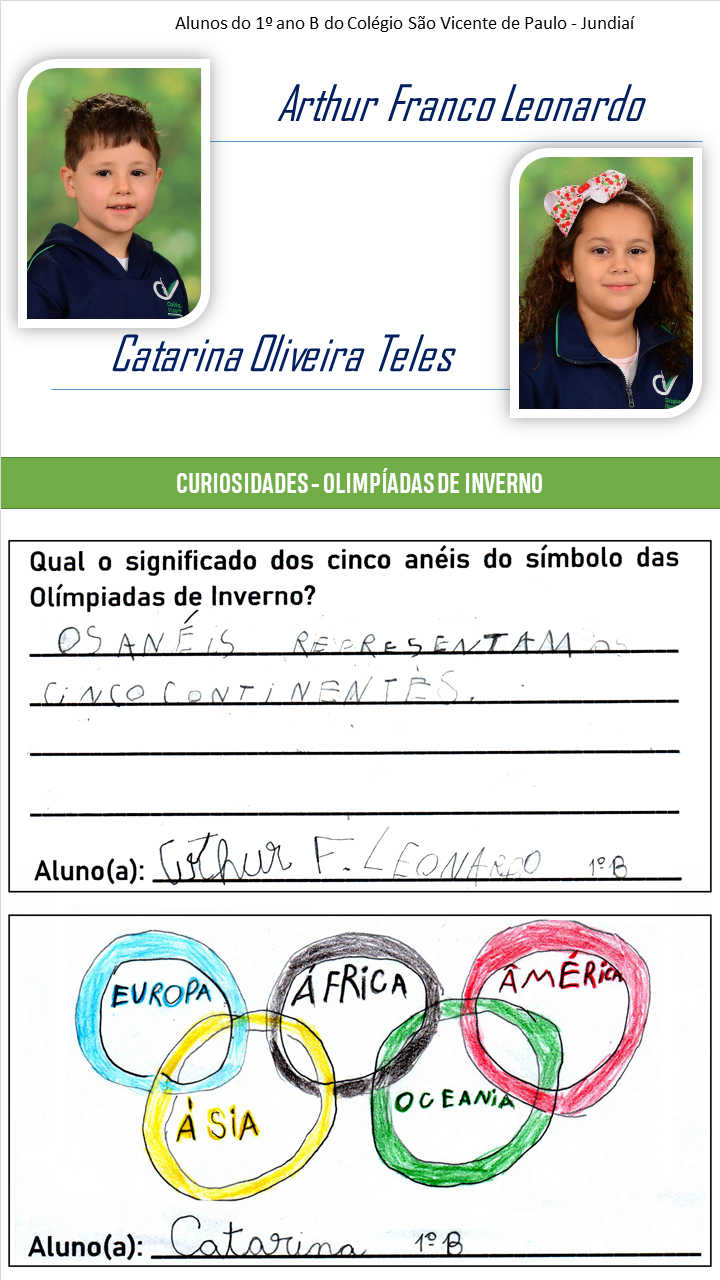 Alunos do 1º ano B do Colégio São Vicente de Paulo - Jundiaí
Arthur Franco Leonardo
Catarina Oliveira Teles
CURIOSIDADES - OLIMPÍADAS DE INVERNO
Qual o significado dos cinco anéis do símbolo das
Olímpiadas de Inverno?
OS ANÉiS REPRESENTAM OS
CiNCO CONTiNENTES.
Aluno(a): Arthur F. LEONARDO 1º B
EUROPA ÁFRiCA ÂMÉRiCA
ÁSiA OCEANiA
Aluno(a): Catarina 1º B